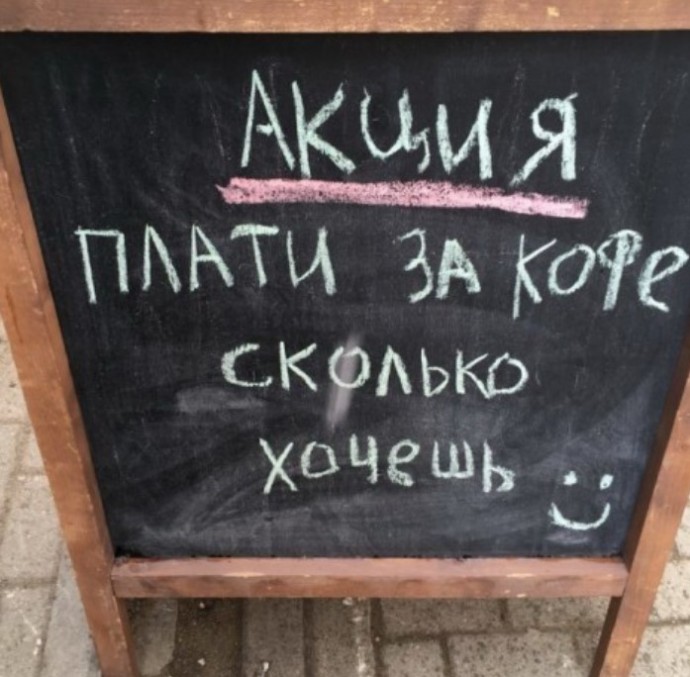 АКЦИЯ
ПЛАТИ ЗА КОФЕ
СКОЛЬКО
ХОЧЕШЬ